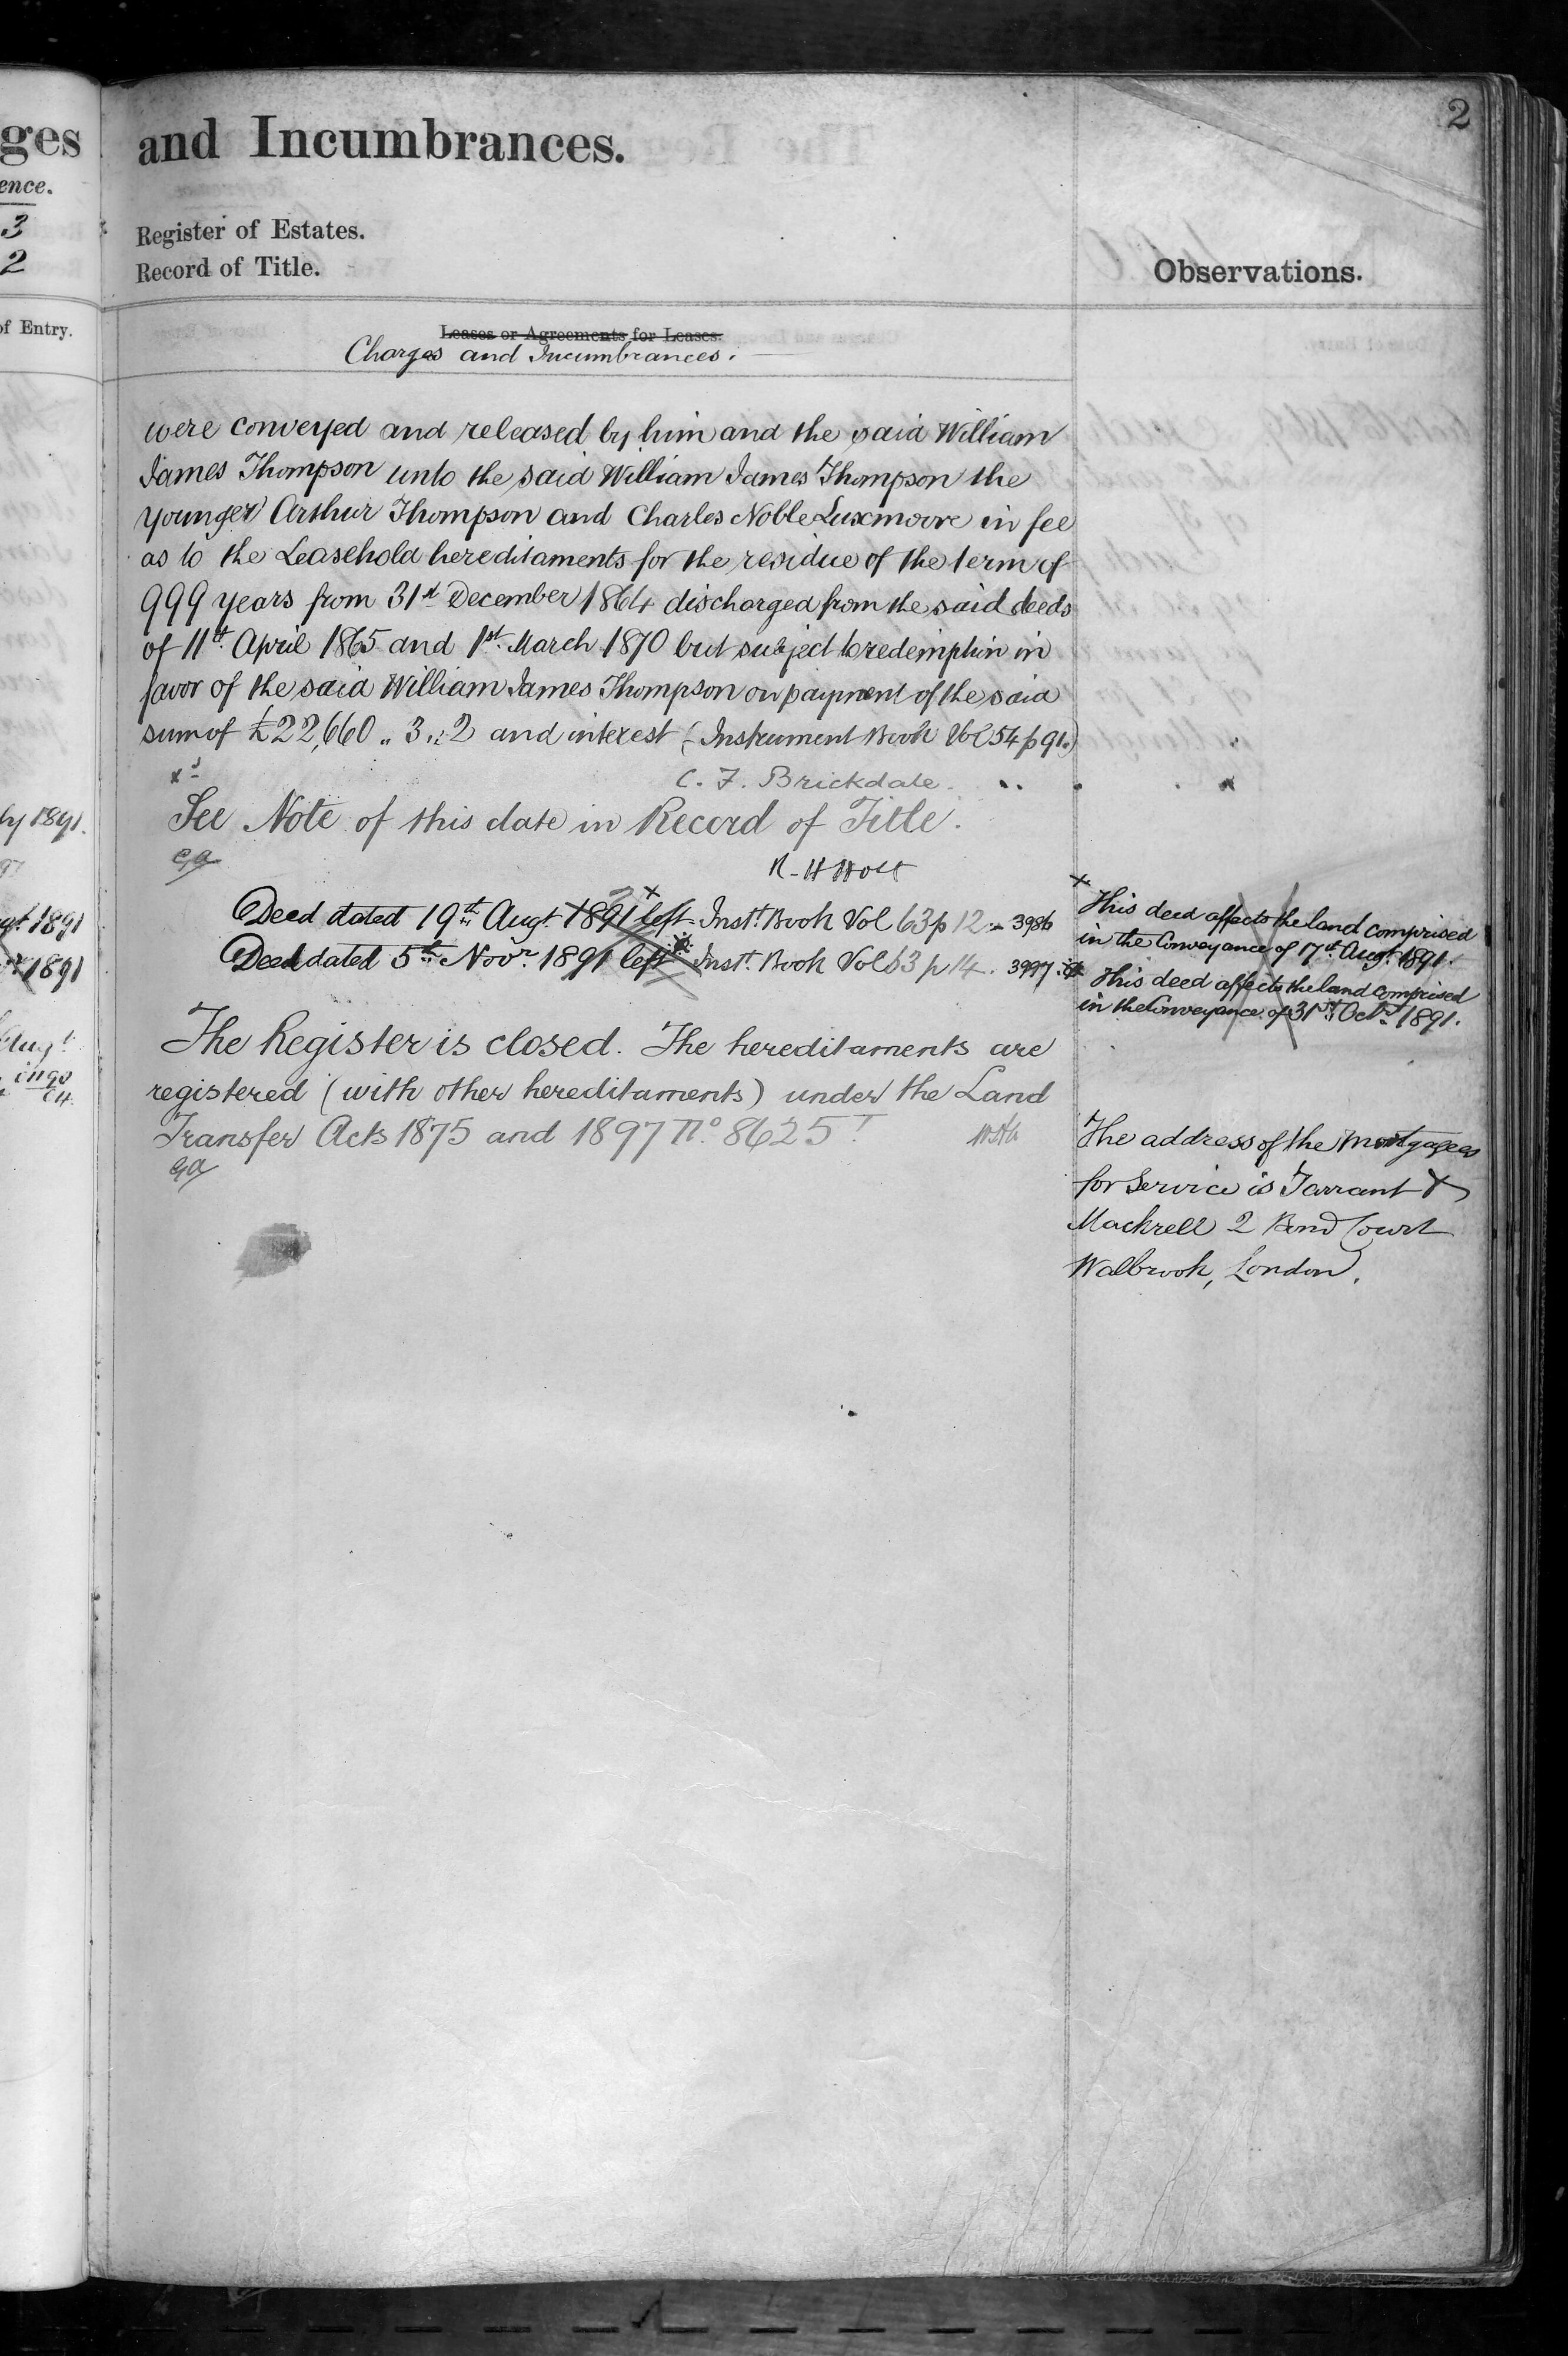 ges
ence.
3
2
of Entry.
ly 1891.
97
gt 1891
1891
Augt.
and Incumbrances.
2
Register of Estates.
Record of Title.
Observations.
Leases or Agreements for Leases.
Charges and Incumbrances.
were conveyed and released by him and the said William
James Thompson unto the said William James Thompson the
younger Arthur Thompson and Charles Noble Luxmoore in fee
as to the Leasehold hereditaments for the residue of the term of
999 years from 31st December 1864 discharged from the said deeds
of 11th April 1865 and 1st March 1870 but subject to redemption in
favor of the said William James Thompson on payment of the said
sum of £22,660 .. 3 .. 2 and interest (Instrument Book Vol 54 p 91.)
C. F. Brickdale.
See Note of this date in Record of Title.
R. H Holt
Deed dated 19th Augt. 1891 left Instt. Book Vol 63 p 12 - 3986
Deed dated 5th Novr. 1891 left Instt. Book Vol 63 p 14. 3997.
The Register is closed. The hereditaments are
registered (with other hereditaments) under the Land
Transfer Acts 1875 and 1897 No. 8625
x This deed affects the land comprised
in the Conveyance of 17th Augt. 1891.
This deed affects the land comprised
in the Conveyance of 31st Octr. 1891.
The address of the mortgagees
for Service is Tarrant &
Mackrell 2 Bond Court
Walbrook, London.